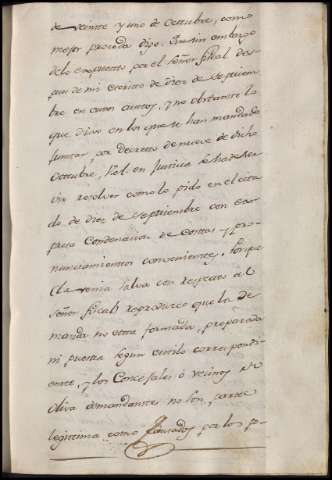 de veinte y uno de Octubre, como
mejor proceda digo: Que sin embargo
de lo expuesto por el Señor fiscal des-
pues de mi escrito de diez de Septiem-
bre en estos autos, y no obstante lo
que dijo en los que se han mandado
juntar, por decreto de nueve de dicho
Octubre, V.E. en Justicia se ha de ser-
vir resolver como lo pido en el cita-
do de diez de Septiembre con ex-
presa Condenacion de costas y pro-
nunciamientos convenientes; Porque
(la venia salva con respecto al
Señor fiscal) reproduzco que la de-
manda no está formada, preparada
ni puesta segun estilo correspondi-
ente, y los Concejales ó vecinos de
Oliva demandantes no son parte
legitima como forzados por los p-